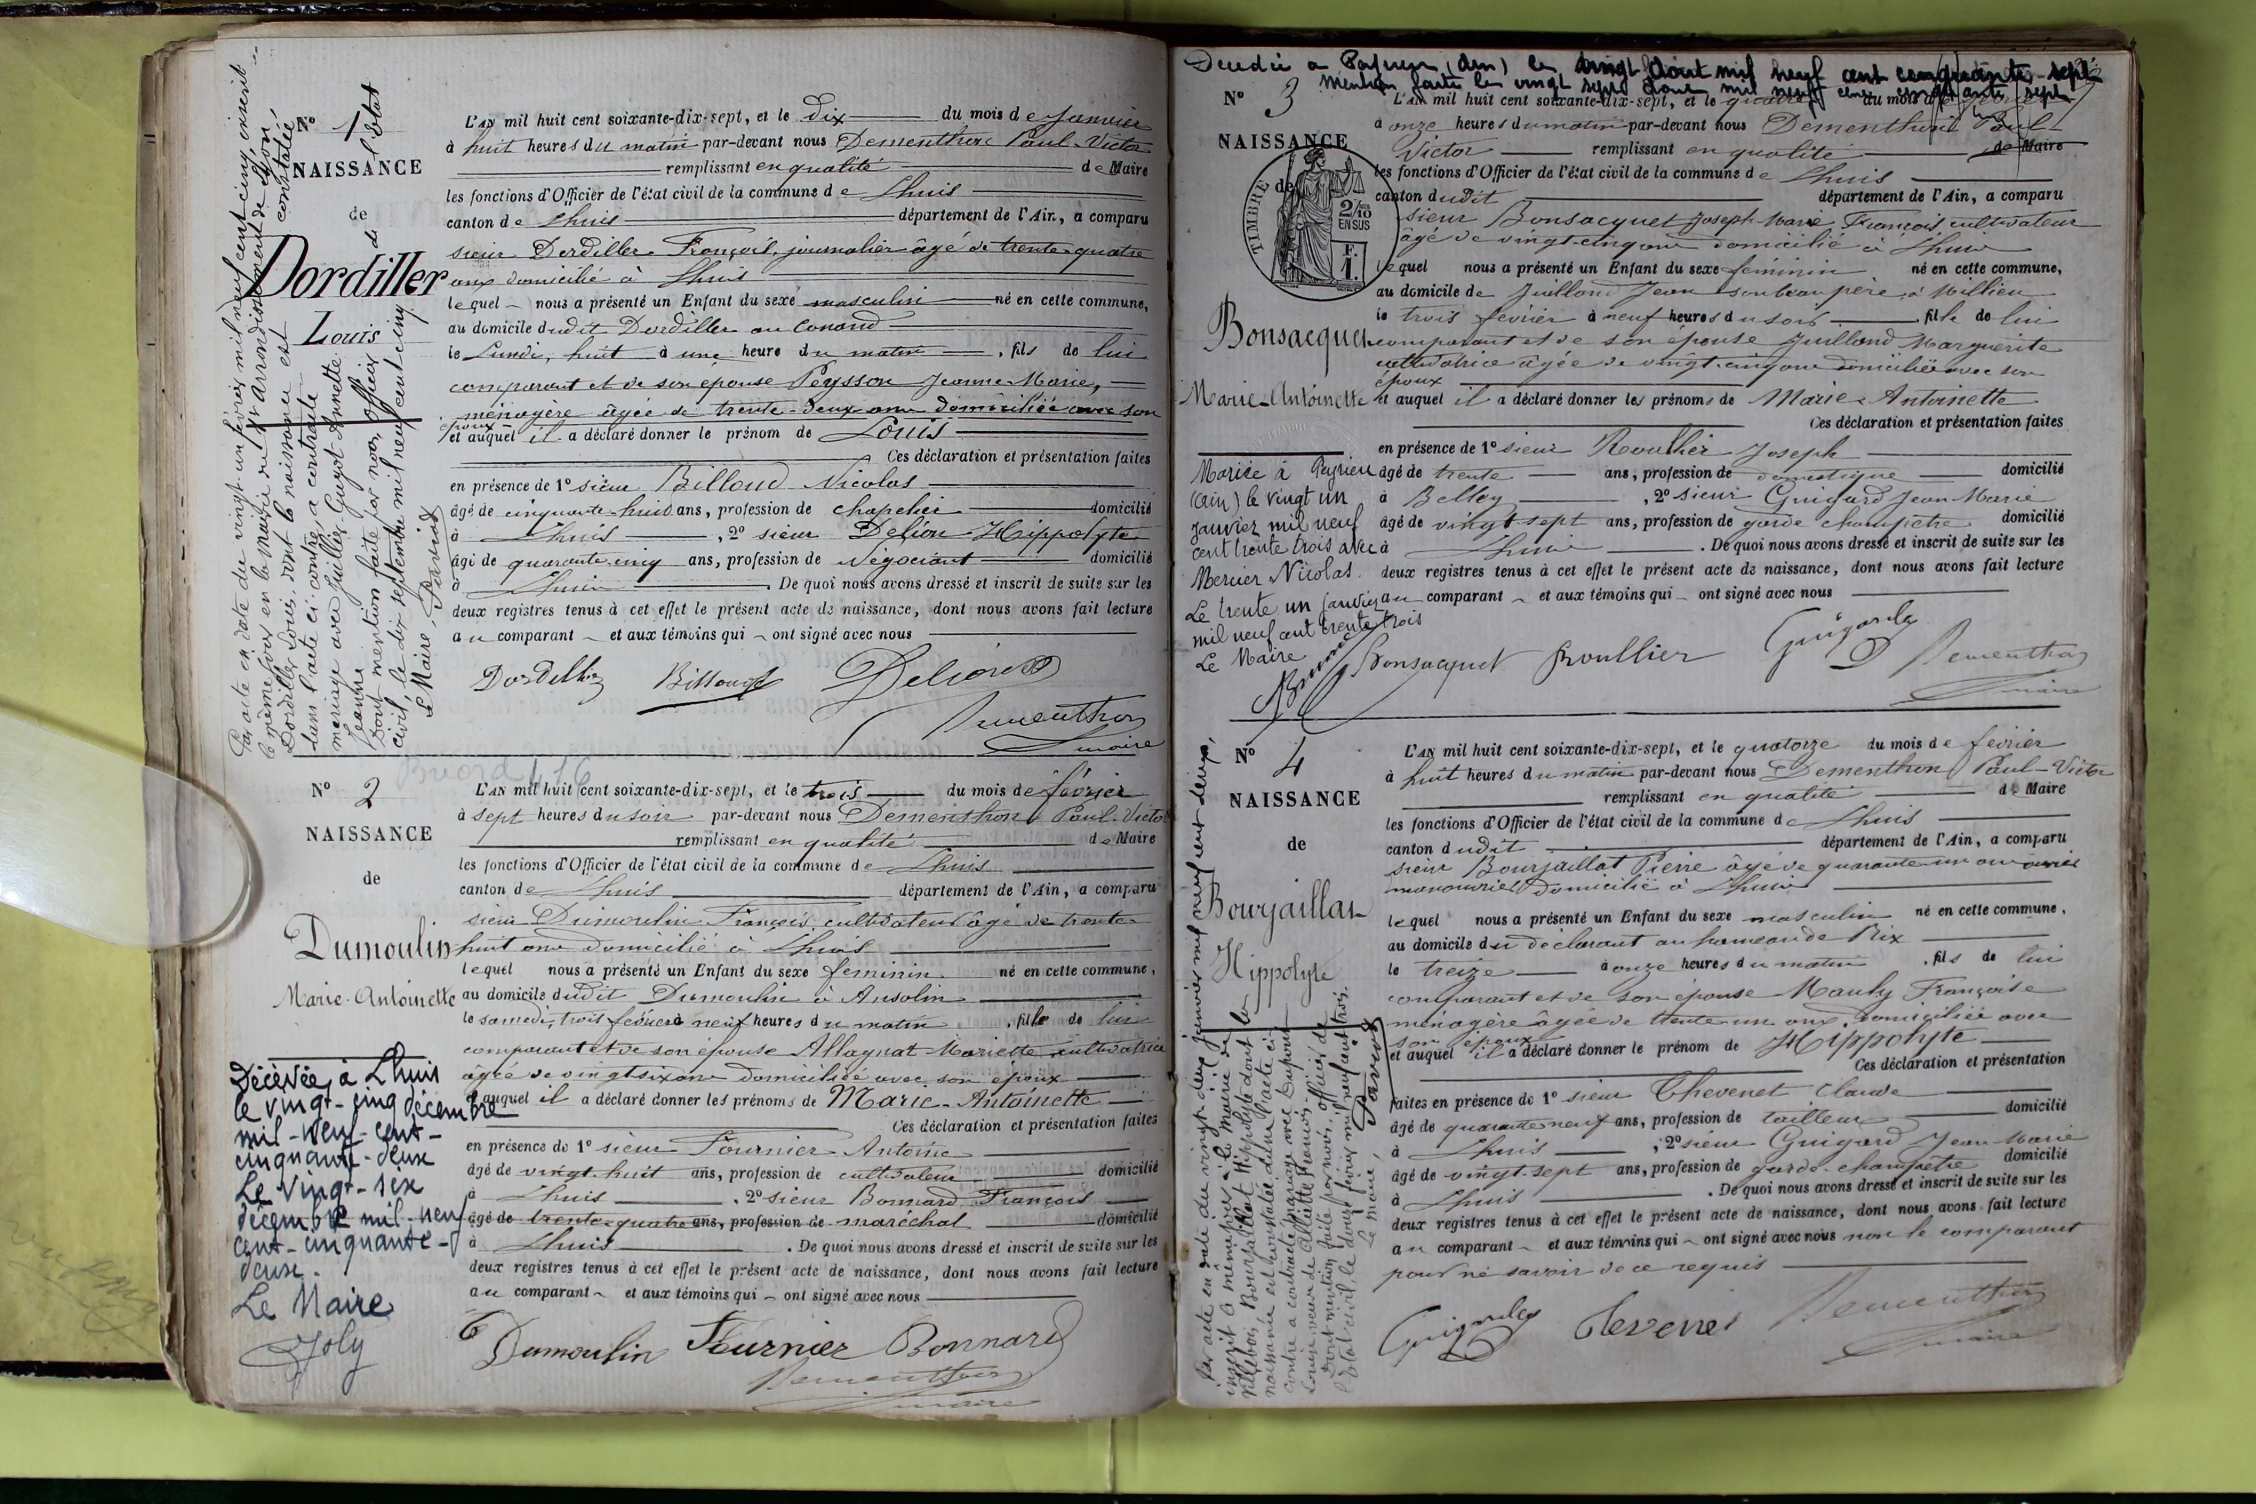 N° 1
NAISSANCE
de
Dordiller
Louis
L'AN mil huit cent soixante-dix-sept, et le Dix du mois de Janvier
à huit heures du matin par-devant nous Dementhon Paul-Victor
remplissant en qualité de Maire
les fonctions d'Officier de l'état civil de la commune de Lhuis
canton de Lhuis département de l'Ain, a comparu
sieur Dordiller François, journalier âgé de trente-quatre
ans domicilié à Lhuis
lequel nous a présenté un Enfant du sexe masculin né en cette commune,
au domicile dudit Dordiller au Conand
le Lundi, huit à une heure du matin, fils de lui
comparant et de son épouse Peysson Jeanne-Marie,
ménagère âgée de trente-deux ans domiciliée avec son
époux et auquel il a déclaré donner le prénom de Louis
Ces déclaration et présentation faites
en présence de 1° sieur Billoud Nicolas
âgé de cinquante-huit ans, profession de chapelier domicilié
à Lhuis, 2° sieur Delion Hippolyte
âgé de quarante-cinq ans, profession de Négociant domicilié
à Lhuis. De quoi nous avons dressé et inscrit de suite sur les
deux registres tenus à cet effet le présent acte de naissance, dont nous avons fait lecture
au comparant et aux témoins qui ont signé avec nous
Dordiller Billoud Delion
Dementhon
maire
Par acte en date du vingt-un février mil neuf cent cinq, inscrit
le même jour en la Mairie du arrondissement de Lyon,
Dordiller Louis, dont la naissance est constatée
dans l'acte ci-contre, a contracté
mariage avec Guillet-Guyot Annette
Jeanne
Dont mention faite par nous, officier de l'état
civil, le dix septembre mil neuf cent cinq.
Le Maire, Parvioz
Briord 4/6
N° 2
NAISSANCE
de
Dumoulin
Marie-Antoinette
L'AN mil huit cent soixante-dix-sept, et le trois du mois de février
à sept heures du soir par-devant nous Dementhon Paul-Victor
remplissant en qualité de Maire
les fonctions d'Officier de l'état civil de la commune de Lhuis
canton de Lhuis département de l'Ain, a comparu
sieur Dumoulin François, cultivateur âgé de trente-
huit ans domicilié à Lhuis
lequel nous a présenté un Enfant du sexe féminin né en cette commune,
au domicile dudit Dumoulin à Ansolin
le samedi, trois février à neuf heures du matin, fille de lui
comparant et de son épouse Allagnat Mariette cultivatrice
âgée de vingt six ans domiciliée avec son époux
et auquel il a déclaré donner les prénoms de Marie-Antoinette
Ces déclaration et présentation faites
en présence de 1° sieur Fournier Antoine
âgé de vingt-huit ans, profession de cultivateur domicilié
à Lhuis, 2° sieur Bonnard François
âgé de trente-quatre ans, profession de maréchal domicilié
à Lhuis. De quoi nous avons dressé et inscrit de suite sur les
deux registres tenus à cet effet le présent acte de naissance, dont nous avons fait lecture
au comparant et aux témoins qui ont signé avec nous
Dumoulin Fournier Bonnard
Dementhon
maire
Décédée à Lhuis
le vingt-cinq décembre
mil-neuf-cent-
cinquante-deux
Le vingt-six
décembre mil-neuf-
cent-cinquante-
deux.
Le Maire
Joly
Décédée à Peyrieu (Ain) le vingt août mil neuf cent cinquante-sept
mention faite le vingt sept août mil neuf cent cinquante sept
N° 3
NAISSANCE
de
TIMBRE
2/10 EN SUS
F. 1.
Bonsacquet
Marie-Antoinette
L'AN mil huit cent soixante-dix-sept, et le quatre du mois de février
à onze heures du matin par-devant nous Dementhon Paul-
Victor remplissant en qualité de Maire
les fonctions d'Officier de l'état civil de la commune de Lhuis
canton dudit département de l'Ain, a comparu
sieur Bonsacquet Joseph-Marie François cultivateur
âgé de vingt-cinq ans domicilié à Lhuis
lequel nous a présenté un Enfant du sexe féminin né en cette commune,
au domicile de Juilland Jean son beau père, à Millieu
le trois février à neuf heures du soir, fille de lui
comparant et de son épouse Juilland Marguerite
cultivatrice âgée de vingt-cinq ans domiciliée avec son
époux
et auquel il a déclaré donner les prénoms de Marie-Antoinette
Ces déclaration et présentation faites
en présence de 1° sieur Roullier Joseph
âgé de trente ans, profession de domestique domicilié
à Belley, 2° sieur Guigard Jean Marie
âgé de vingt-sept ans, profession de garde champêtre domicilié
à Lhuis. De quoi nous avons dressé et inscrit de suite sur les
deux registres tenus à cet effet le présent acte de naissance, dont nous avons fait lecture
au comparant et aux témoins qui ont signé avec nous
Bonsacquet Roullier Guigard Dementhon
maire
Mariée à Peyrieu
(Ain) le vingt un
janvier mil neuf
cent trente trois avec
Mercier Nicolas.
Le trente un janvier
mil neuf cent trente trois
Le Maire
N° 4
NAISSANCE
de
Bourjaillat
Hippolyte
L'AN mil huit cent soixante-dix-sept, et le quatorze du mois de février
à huit heures du matin par-devant nous Dementhon Paul-Victor
remplissant en qualité de Maire
les fonctions d'Officier de l'état civil de la commune de Lhuis
canton dudit département de l'Ain, a comparu
sieur Bourjaillat Pierre âgé de quarante-un ans
manouvrier domicilié à Lhuis
lequel nous a présenté un Enfant du sexe masculin né en cette commune,
au domicile du déclarant au hameau de Rix
le treize à onze heures du matin, fils de lui
comparant et de son épouse Françoise
ménagère âgée de trente-un ans, domiciliée avec
son époux
et auquel il a déclaré donner le prénom de Hippolyte
Ces déclaration et présentation
faites en présence de 1° sieur Thevenet Claude
âgé de quarante neuf ans, profession de tailleur domicilié
à Lhuis, 2° sieur Guigard Jean Marie
âgé de vingt-sept ans, profession de garde-champêtre domicilié
à Lhuis. De quoi nous avons dressé et inscrit de suite sur les
deux registres tenus à cet effet le présent acte de naissance, dont nous avons fait lecture
au comparant et aux témoins qui ont signé avec nous non le comparant
pour ne savoir de ce requis
Guigard Tevenet Dementhon
maire
Par acte en date du vingt-deux janvier mil neuf cent deux,
inscrit à même jour à la mairie de
Bourjaillat Hippolyte dont la
naissance est constatée dans l'acte ci-
contre a contracté mariage avec
Louise veuve de
Dont mention faite par nous, officier de
l'état civil, le douze février mil neuf cent trois.
Le Maire,
Parvioz